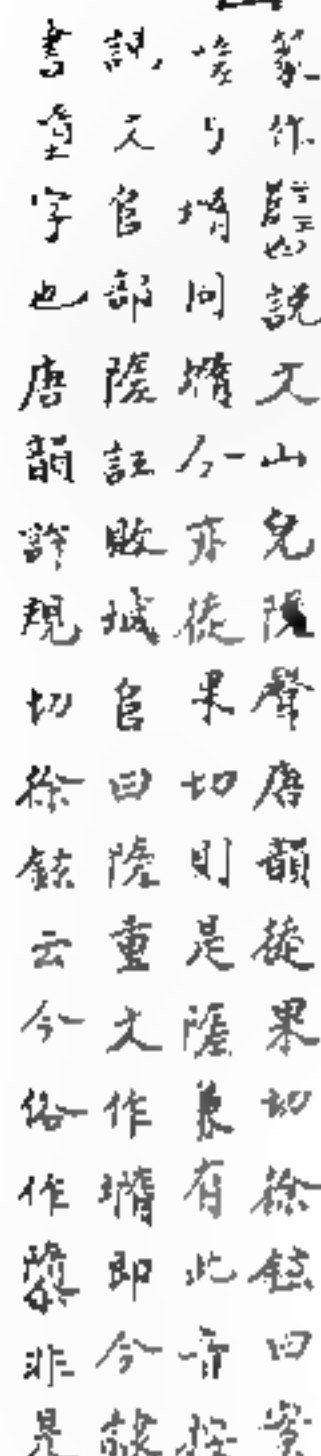 篆作𡼁說文山皃隓聲唐韻徒果切徐鉉曰案
㟎與墮同墮今亦徒果切則是隓兼有此音按
說文𨸏部隓註敗城𨸏曰隓重文作墮即今隸
書墮字也唐韻許規切徐鉉云今俗作隳非是